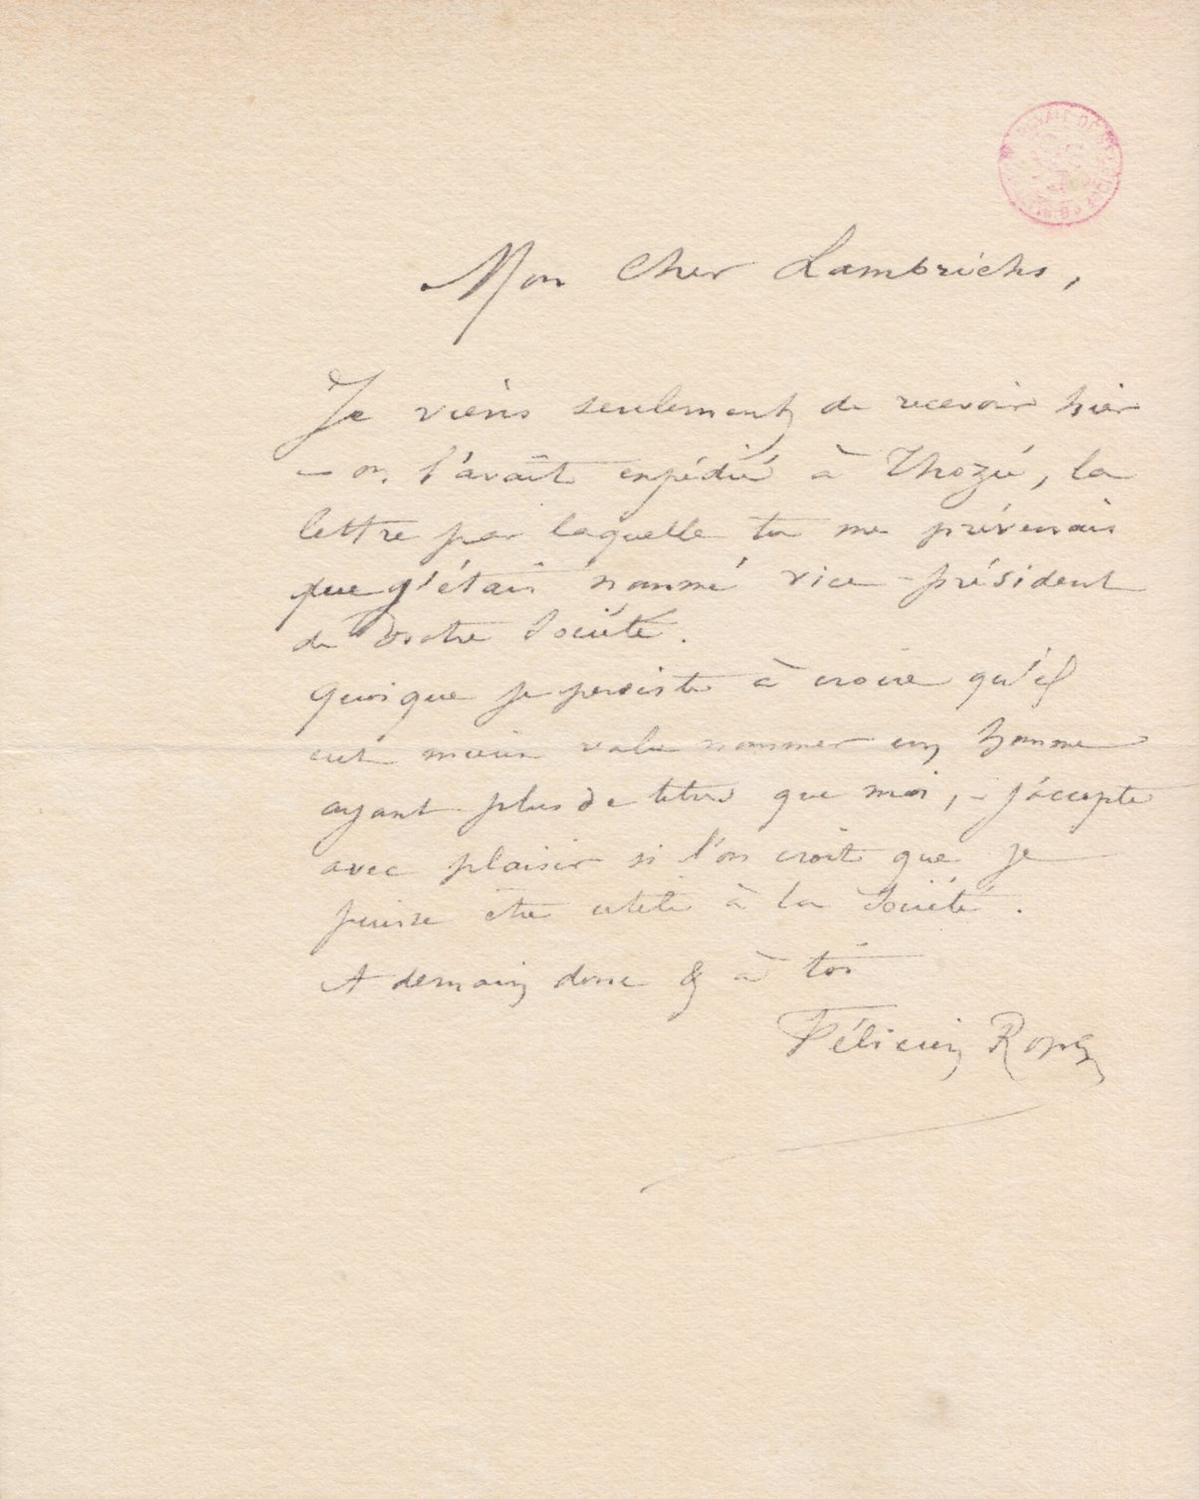 Mon Cher Lambrichs,
Je viens seulement de recevoir hier
– on l'avait expédié à Thozée, la
lettre par laquelle tu me prévenais
que j'étais nommé vice-président
de votre Société.
Quoique je persiste à croire qu'il
eut mieux valu nommer un homme
ayant plus de titres que moi, – j'accepte
avec plaisir si l'on croit que je
puisse être utile à la Société.
A demain donc & à toi
Félicien Rops